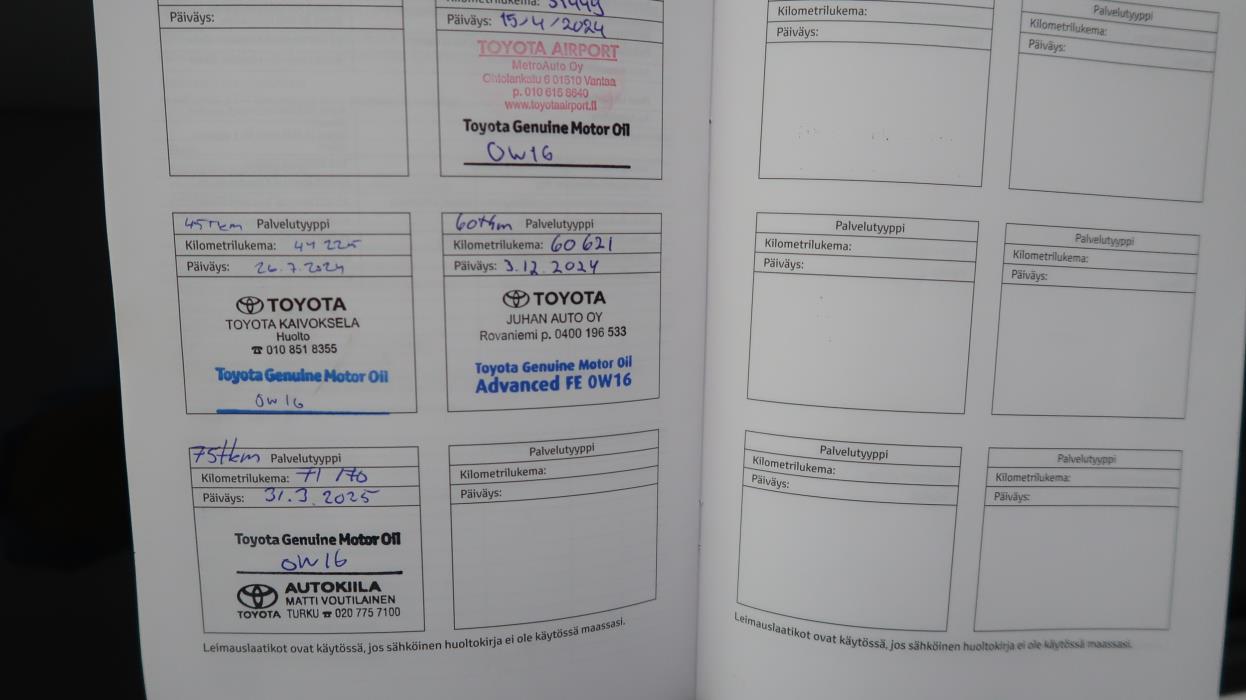 Päiväys:
Kilometrilukema: 31449
Päiväys: 15/4/2024
TOYOTA AIRPORT
MetroAuto Oy
Ohtolankatu 6 01510 Vantaa
p. 010 615 8640
www.toyotaairport.fi
Toyota Genuine Motor Oil
0W16
45Tkm Palvelutyyppi
Kilometrilukema: 44 225
Päiväys: 26.7.2024
TOYOTA
TOYOTA KAIVOKSELA
Huolto
☎ 010 851 8355
Toyota Genuine Motor Oil
0W16
60tkm Palvelutyyppi
Kilometrilukema: 60 621
Päiväys: 3.12.2024
TOYOTA
JUHAN AUTO OY
Rovaniemi p. 0400 196 533
Toyota Genuine Motor Oil
Advanced FE 0W16
75tkm Palvelutyyppi
Kilometrilukema: 71 170
Päiväys: 31.3.2025
Toyota Genuine Motor Oil
0W16
AUTOKIILA
MATTI VOUTILAINEN
TOYOTA TURKU ☎ 020 775 7100
Palvelutyyppi
Kilometrilukema:
Päiväys:
Leimauslaatikot ovat käytössä, jos sähköinen huoltokirja ei ole käytössä maassasi.
Kilometrilukema:
Päiväys:
Palvelutyyppi
Kilometrilukema:
Päiväys:
Palvelutyyppi
Kilometrilukema:
Päiväys:
Palvelutyyppi
Kilometrilukema:
Päiväys:
Palvelutyyppi
Kilometrilukema:
Päiväys:
Palvelutyyppi
Kilometrilukema:
Päiväys:
Leimauslaatikot ovat käytössä, jos sähköinen huoltokirja ei ole käytössä maassasi.